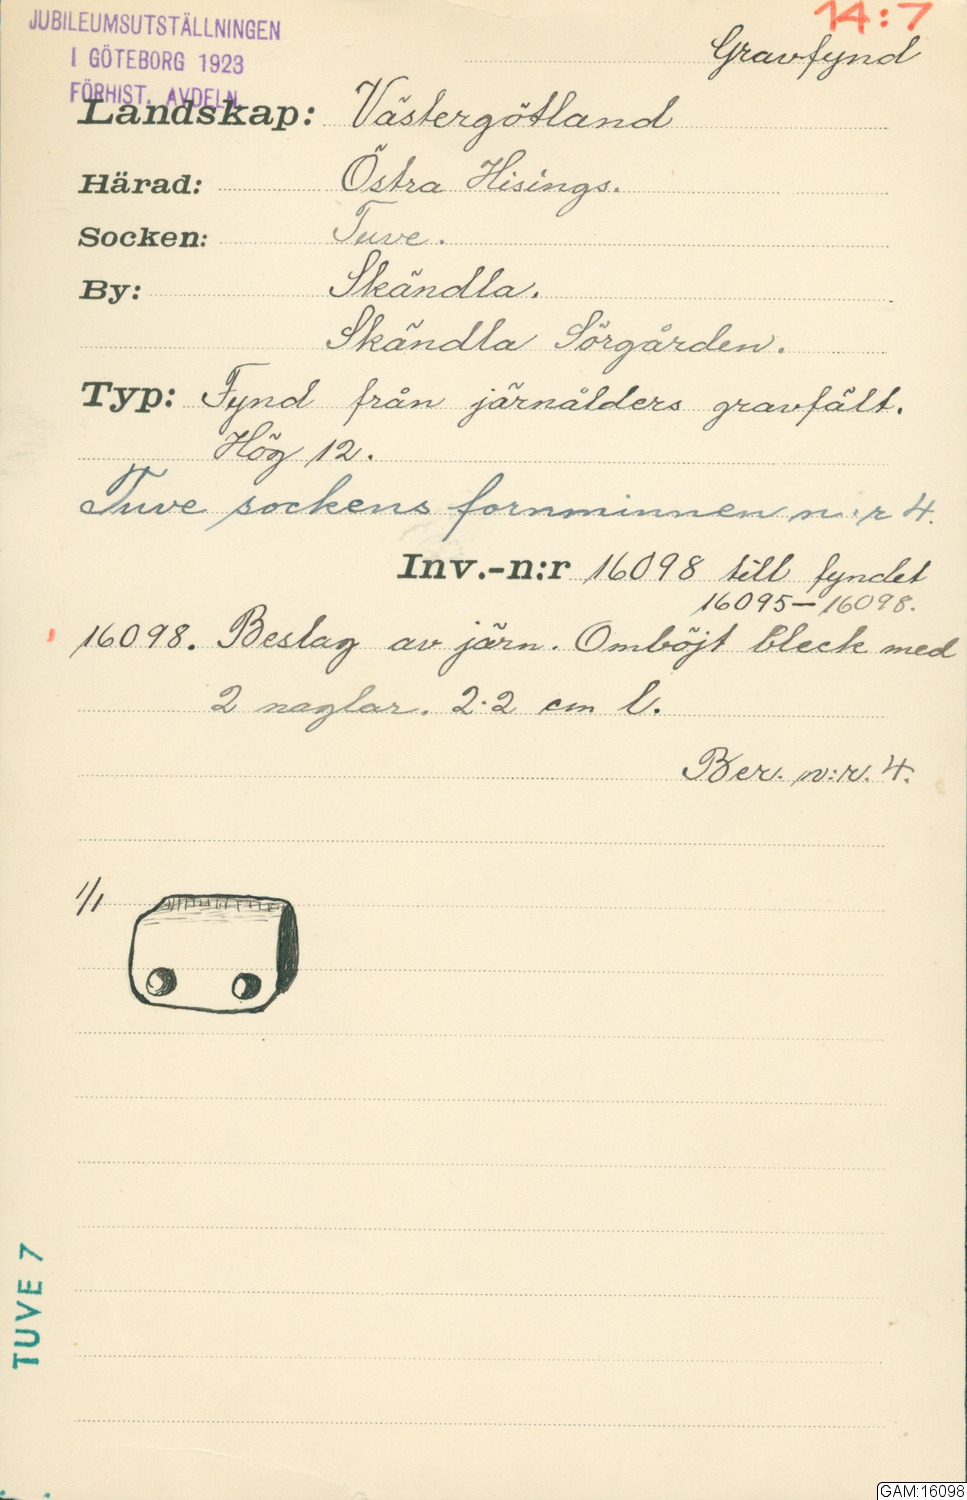 14:7
JUBILEUMSUTSTÄLLNINGEN
I GÖTEBORG 1923
FÖRHIST. AVDELN.
Gravfynd
Landskap: Västergötland
Härad: Östra Hisings.
Socken: Tuve.
By: Skändla.
Skändla Sörgården.
Typ: Fynd från järnålders gravfält.
Hög 12.
Tuve sockens fornminnen n:r 4.
Inv.-n:r 16098 till fyndet
16095—16098.
16098. Beslag av järn. Omböjt bleck med
2 naglar. 2.2 cm l.
Ber. n:r. 4.
1/1
TUVE 7
GAM:16098